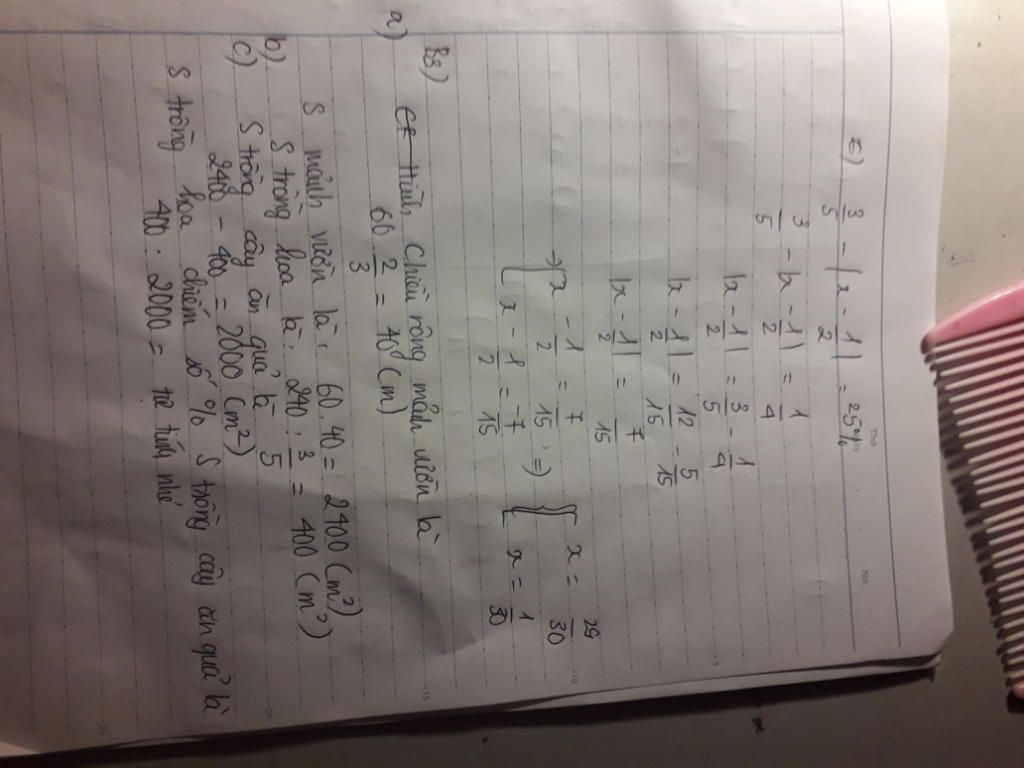 Thứ
No.
E) 3/5 - |x - 1/2| = 25%
3/5 - |x - 1/2| = 1/4
|x - 1/2| = 3/5 - 1/4
|x - 1/2| = 12/15 - 5/15
|x - 1/2| = 7/15
→ [ x - 1/2 = 7/15 ; => [ x = 29/30
[ x - 1/2 = -7/15 [ x = 1/30
B3)
a) Chiều rộng mảnh vườn là
60 2/3 = 40 (m)
S mảnh vườn là: 60.40 = 2400 (m²)
b) S trồng hoa là: 240 . 3/5 = 400 (m²)
c) S trồng cây ăn quả là
240 - 400 = 2000 (m²)
S trồng hoa chiếm số % S trồng cây ăn quả là
400 : 2000 = tự tính nhé